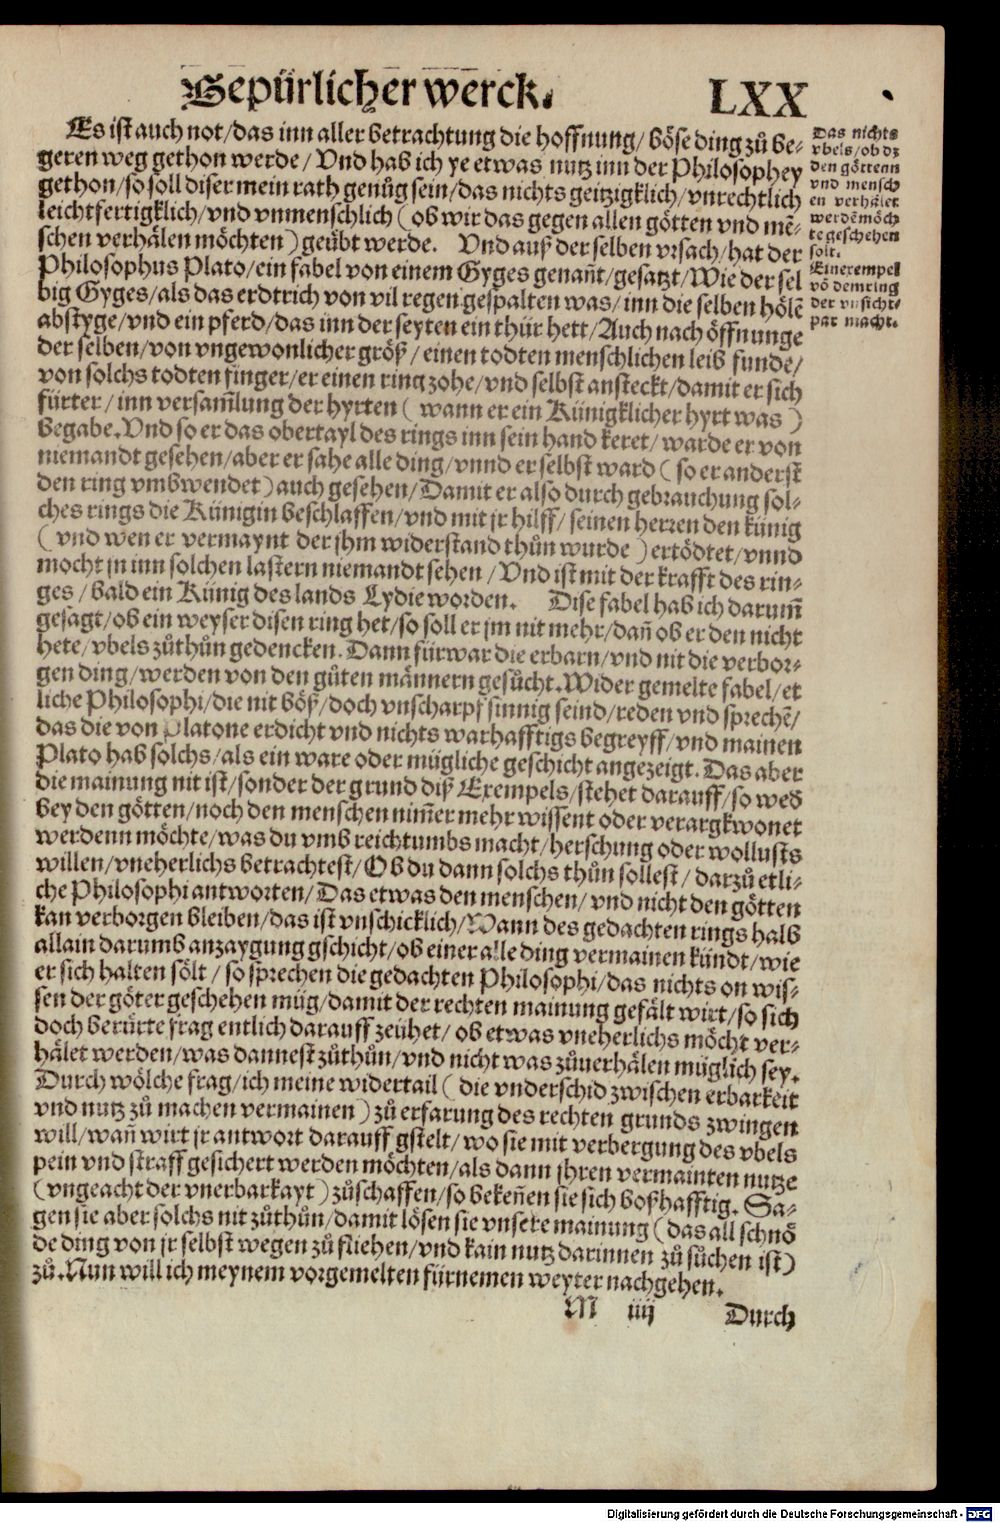 Gepürlicher werck. LXX
Es ist auch not/das inn aller betrachtung die hoffnung/ böse ding zů be-
geren weg gethon werde/ Vnd hab ich ye etwas nutz inn der Philosophey
gethon/so soll diser mein rath genůg sein/das nichts geitzigklich/vnrechtlich
leichtfertigklich/vnd vnmenschlich (ob wir das gegen allen götten vnd mē-
schen verhälen möchten) geübt werde. Vnd auß der selben vrsach/hat der
Philosophus Plato/ein fabel von einem Gyges genañt/gesatzt/Wie der sel
big Gyges/als das erdtrich von vil regen gespalten was/inn die selben hölē
abstyge/vnd ein pferd/das inn der seyten ein thür hett/Auch nach öffnunge
der selben/von vngewonlicher größ/ einen todten menschlichen leib funde/
von solchs todten finger/er einen ring zohe/vnd selbst ansteckt/damit er sich
fürter/ inn versam̄lung der hyrten ( wann er ein Künigklicher hyrt was )
begabe.Vnd so er das obertayl des rings inn sein hand keret/ warde er von
niemandt gesehen/aber er sahe alle ding/vnnd er selbst ward ( so er anderst
den ring vmbwendet) auch gesehen/Damit er also durch gebrauchung sol-
ches rings die Künigin beschlaffen/vnd mit jr hilff/ seinen herren den künig
( vnd wen er vermaynt der jhm widerstand thůn wurde ) ertödtet/vnnd
mocht jn inn solchen lastern niemandt sehen /Vnd ist mit der krafft des rin-
ges / bald ein Künig des lands Lydie worden. Dise fabel hab ich darum̄
gesagt/ob ein weyser disen ring het/so soll er jm nit mehr/dañ ob er den nicht
hete/vbels zůthůn gedencken.Dann fürwar die erbarn/vnd nit die verbor-
gen ding/werden von den gůten männern gesůcht.Wider gemelte fabel/et
liche Philosophi/die nit böß/doch vnscharpfsinnig seind/reden vnd sprechē/
das die von Platone erdicht vnd nichts warhafftigs begreyff/vnd mainen
Plato hab solchs/als ein ware oder mügliche geschicht angezeigt.Das aber
die mainung nit ist/sonder der grund diß Exempels/stehet darauff/so wed̄
bey den götten/noch den menschen nim̄er mehr wissent oder verargkwonet
werdenn möchte/was du vmb reichtumbs macht/herschung oder wollusts
willen/vneherlichs betrachtest/Ob du dann solchs thůn sollest/ darzů etli-
che Philosophi antworten/Das etwas den menschen/ vnd nicht den götten
kan verborgen bleiben/das ist vnschicklich/Wann des gedachten rings halb
allain darumb anzaygung gschicht/ob einer alle ding vermainen kündt/wie
er sich halten sölt / so sprechen die gedachten Philosophi/das nichts on wis-
sen der göter geschehen müg/damit der rechten mainung gefält wirt/so sich
doch berürte frag entlich darauff zeühet/ ob etwas vneherlichs möcht ver-
hälet werden/was dannest zůthůn/vnd nicht was zůuerhälen müglich sey.
Durch wölche frag/ich meine widertail ( die vnderschid zwischen erbarkeit
vnd nutz zů machen vermainen) zů erfarung des rechten grunds zwingen
will/wañ wirt jr antwort darauff gstelt/wo sie mit verbergung des vbels
pein vnd straff gesichert werden möchten/als dann jhren vermainten nutze
(vngeacht der vnerbarkayt) zůschaffen/so bekeñen sie sich boßhafftig. Sa-
gen sie aber solchs nit zůthůn/damit lösen sie vnsere mainung (das all schnö
de ding von jr selbst wegen zů fliehen/vnd kain nutz darinnen zů sůchen ist)
zů.Nun will ich meynem vorgemelten fürnemen weyter nachgehen.
M iiij Durch
Das nichts
vbels/ob dz
den göttenn
vnd mensch
en verhälet
werdē möch
te geschehen
solt.
Ein exempel
vō dem ring
der vnsicht-
par macht.
Digitalisierung gefördert durch die Deutsche Forschungsgemeinschaft - DFG